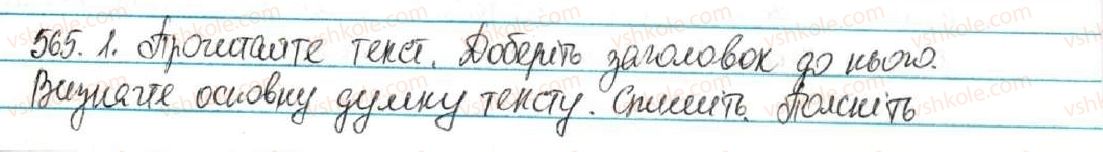 565. 1. Прочитайте текст. Доберіть заголовок до нього.
Визначте основну думку тексту. Спишіть. Поясніть